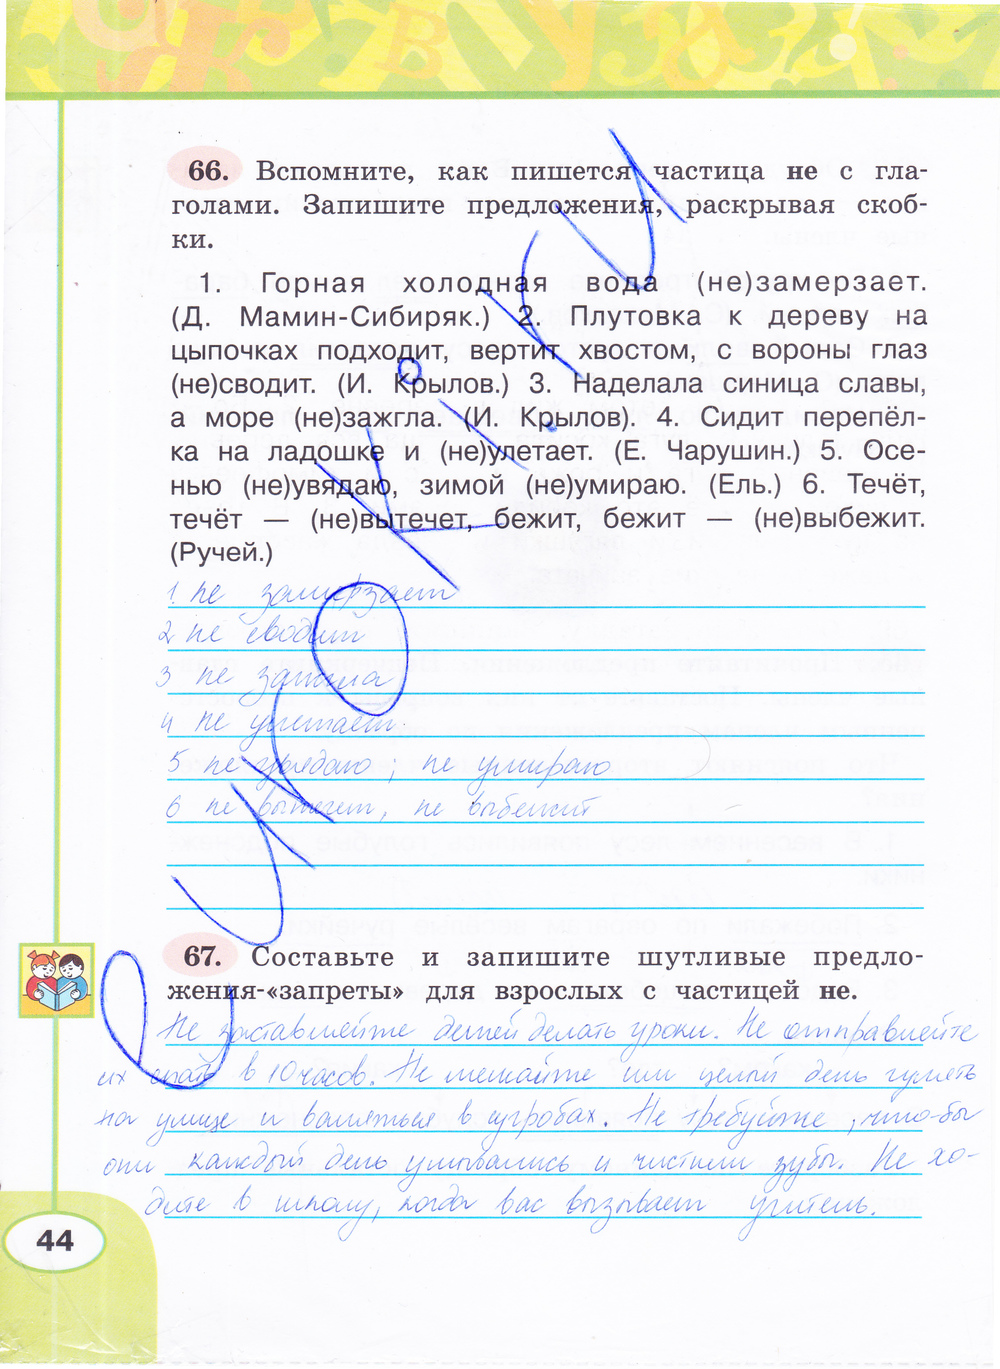 66. Вспомните, как пишется частица не с гла-
голами. Запишите предложения, раскрывая скоб-
ки.
1. Горная холодная вода (не)замерзает.
(Д. Мамин-Сибиряк.) 2. Плутовка к дереву на
цыпочках подходит, вертит хвостом, с вороны глаз
(не)сводит. (И. Крылов.) 3. Наделала синица славы,
а море (не)зажгла. (И. Крылов). 4. Сидит перепёл-
ка на ладошке и (не)улетает. (Е. Чарушин.) 5. Осе-
нью (не)увядаю, зимой (не)умираю. (Ель.) 6. Течёт,
течёт — (не)вытечет, бежит, бежит — (не)выбежит.
(Ручей.)
1. не замерзает
2 не сводит
3 не зажгла
4 не улетает.
5 не увядаю, не умираю
6 не вытечет, не выбежит
67. Составьте и запишите шутливые предло-
жения-«запреты» для взрослых с частицей не.
Не заставляйте детей делать уроки. Не отправляйте
их спать в 10 часов. Не мешайте им целый день гулять
на улице и валяться в сугробах. Не требуйте, что-бы
они каждый день умывались и чистили зубы. Не хо-
дите в школу, когда вас вызывает учитель.
44
еуроки.ру